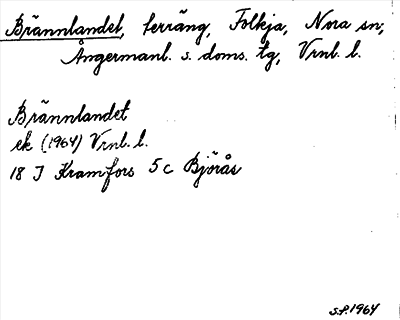 Brännlandet, terräng, Folkja, Nora sn,
Ångermanl. s. doms. tg, Vrnl. l.
Brännlandet
ek (1964) Vrnl. l.
18 J Kramfors 5 c Björås
S.F. 1964